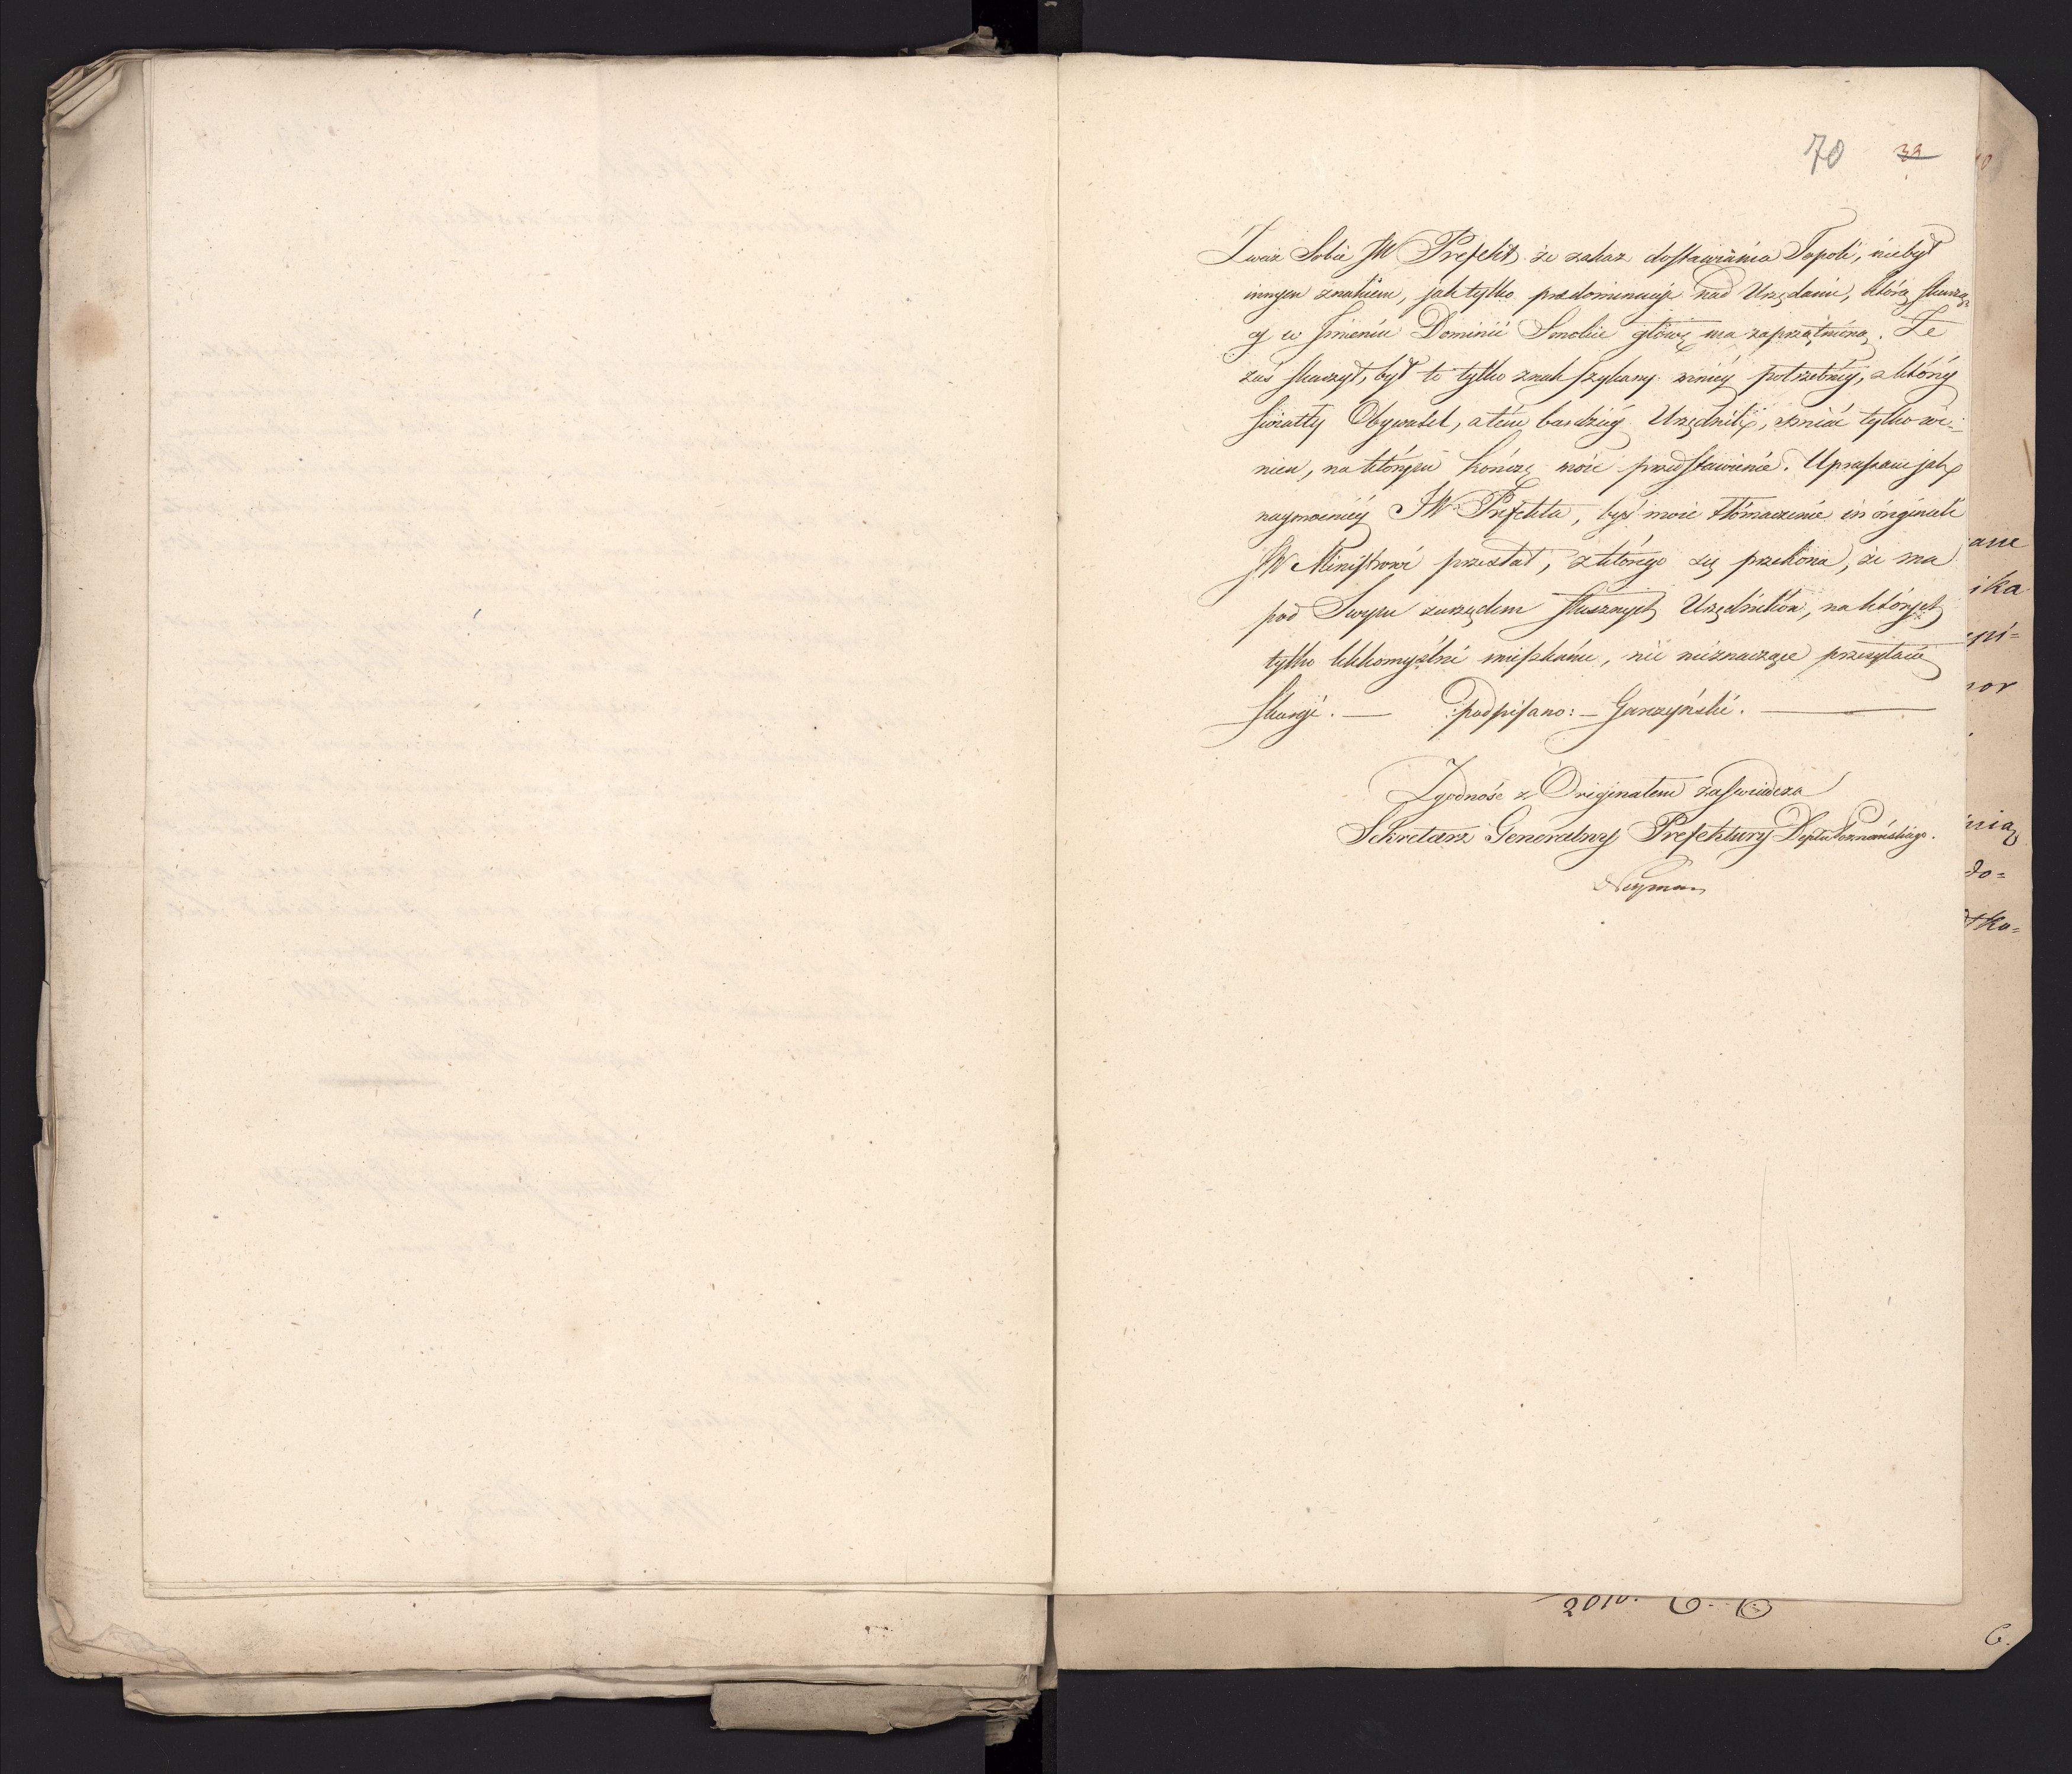 70 39
Zważ Sobie JW Prefekt że zakaz dostawiania Topoli, niebył
innym znakiem, jak tylko predominacyi nad Urzędami, którą skarżą-
cy w Jmieniu Dominii Smolic głowę ma zaprzątnioną. Że
zaś skarżył, był to tylko znak szykany mniéy potrzebnéy, z któréy
światły Obywatel, a tém bardziéy Urzędnik, śmiać tylko wi-
nien, na którym kończę moie przedstawienie. Upraszam jak
naymocniéy JW Prefekta, by moie tłómaczenie in originali
JW Ministrowi przesłał, z którego się przekona, że ma
pod Swym zarządem słusznych Urzędników, na których
tylko lekkomyślni mieszkańcy, nic nieznaczące przesyłaią
skargi. — :podpisano: — Garczyński. —
Zgodność z Originałem zaświadcza
Sekretarz Generalny Prefektury Deptu Poznańskiego.
Neyman
ane
ika
epi=
nor
nią
do=
tka=
C.